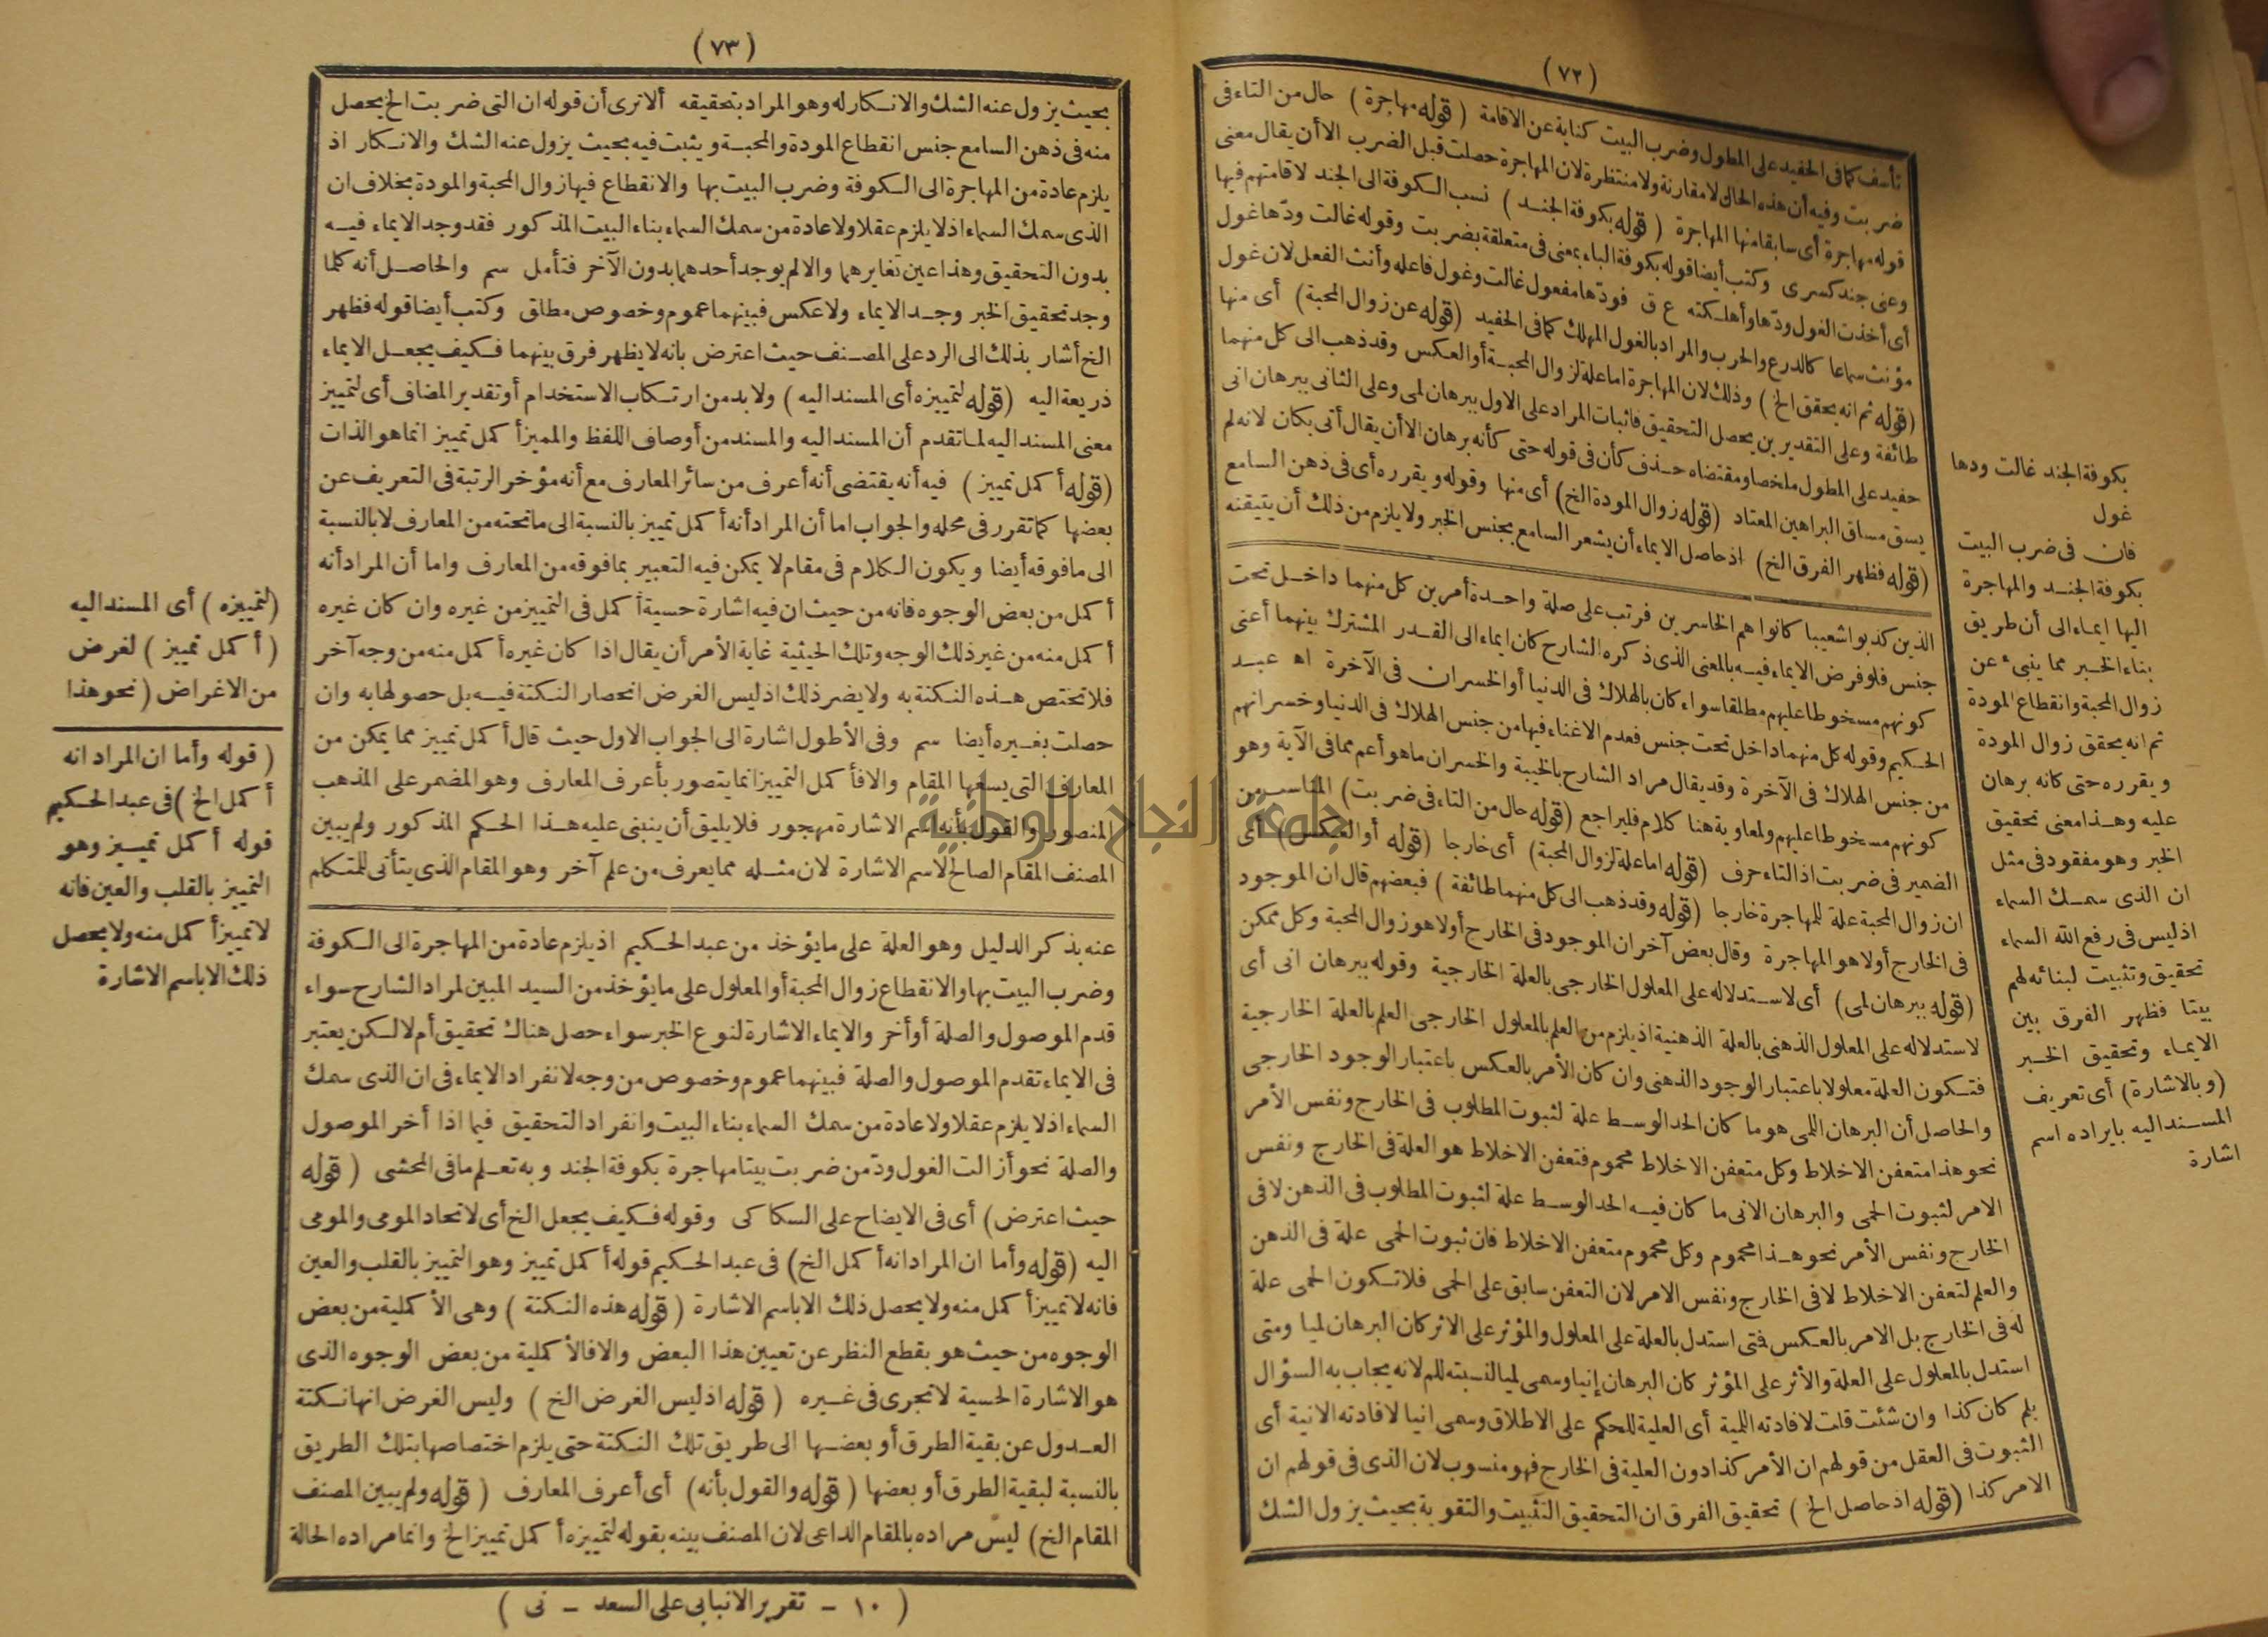 (٧٢)
تأسف كما فى الحفيد على المطول وضرب البيت كناية عن الاقامة (قوله مهاجرة) حال من التاء فى
ضربت وفيه أن هذه الحال لا مقارنة ولا منتظرة لان المهاجرة حصلت قبل الضرب الا أن يقال معنى
قوله مهاجرة أى سابقا منها المهاجرة (قوله بكوفة الجند) نسب الكوفة الى الجند لاقامتهم فيها
وعنى جند كسرى وكتب أيضا قوله بكوفة الباء بمعنى فى متعلقة بضربت وقوله غالت ودّها غول
أى أخذت الغول ودّها وأهلكته ع ق فودّها مفعول غالت وغول فاعله وأنث الفعل لان غول
مؤنث سماعا كالدرع والحرب والمراد بالغول المهلك كما فى الحفيد (قوله عن زوال المحبة) أى منها
(قوله ثم انه يحقق الخ) وذلك لان المهاجرة اما علة لزوال المحبة أو العكس وقد ذهب الى كل منهما
طائفة وعلى التقديرين يحصل التحقيق فاثبات المراد على الاول ببرهان لمى وعلى الثانى ببرهان انى
حفيد على المطول ملخصا ومقتضاه حذف كأن فى قوله حتى كأنه برهان الا أن يقال أتى بكان لانه لم
يسق مساق البراهين المعتاد (قوله زوال المودة الخ) أى منها وقوله ويقرره أى فى ذهن السامع
(قوله فظهر الفرق الخ) اذ حاصل الايماء أن يشعر السامع بجنس الخبر ولا يلزم من ذلك أن يتيقنه
الذين كذبوا شعيبا كانوا هم الخاسرين فرتب على صلة واحدة أمرين كل منهما داخل تحت
جنس فلو فرض الايماء فيه بالمعنى الذى ذكره الشارح كان ايماء الى القدر المشترك بينهما أعنى
كونهم مسخوطا عليهم مطلقا سواء كان بالهلاك فى الدنيا أو الخسران فى الآخرة اه عبد
الحكيم وقوله كل منهما داخل تحت جنس فعدم الاغناء فيها من جنس الهلاك فى الدنيا وخسرانهم
من جنس الهلاك فى الآخرة وقد يقال مراد الشارح بالخيبة والخسران ما هو أعم مما فى الآية وهو
كونهم مسخوطا عليهم ولمعاوية هنا كلام فليراجع (قوله حال من التاء فى ضربت) المناسب من
الضمير فى ضربت اذ التاء حرف (قوله اما علة لزوال المحبة) أى خارجا (قوله أو العكس) أى
ان زوال المحبة علة للمهاجرة خارجا (قوله وقد ذهب الى كل منهما طائفة) فبعضهم قال ان الموجود
فى الخارج أولا هو المهاجرة وقال بعض آخر ان الموجود فى الخارج أولا هو زوال المحبة وكل ممكن
(قوله ببرهان لمى) أى لاستدلاله على المعلول الخارجى بالعلة الخارجية وقوله ببرهان انى أى
لاستدلاله على المعلول الذهنى بالعلة الذهنية اذ يلزم من العلم بالمعلول الخارجى العلم بالعلة الخارجية
فتكون العلة معلولا باعتبار الوجود الذهنى وان كان الأمر بالعكس باعتبار الوجود الخارجى
والحاصل أن البرهان اللمى هو ما كان الحد الوسط علة لثبوت المطلوب فى الخارج ونفس الأمر
نحو هذا متعفن الاخلاط وكل متعفن الاخلاط محموم فتعفن الاخلاط هو العلة فى الخارج ونفس
الامر لثبوت الحمى والبرهان الانى ما كان فيه الحد الوسط علة لثبوت المطلوب فى الذهن لا فى
الخارج ونفس الأمر نحو هذا محموم وكل محموم متعفن الاخلاط فان ثبوت الحمى علة فى الذهن
والعلم لتعفن الاخلاط لا فى الخارج ونفس الامر لان التعفن سابق على الحمى فلا تكون الحمى علة
له فى الخارج بل الامر بالعكس فمتى استدل بالعلة على المعلول والمؤثر على الاثر كان البرهان لميا ومتى
استدل بالمعلول على العلة والأثر على المؤثر كان البرهان إنيا وسمى لميا لنسبته للم لانه يجاب به السؤال
بلم كان كذا وان شئت قلت لافادته اللمية أى العلية للحكم على الاطلاق وسمى انيا لافادته الانية أى
الثبوت فى العقل من قولهم ان الأمر كذا دون العلية فى الخارج فهو منسوب لان الذى فى قولهم ان
الامر كذا (قوله اذ حاصل الخ) تحقيق الفرق ان التحقيق التثبيت والتقوية بحيث يزول الشك
بكوفة الجند غالت ودها
غول
فان فى ضرب البيت
بكوفة الجند والمهاجرة
اليها ايماء الى أن طريق
بناء الخبر مما ينبئ عن
زوال المحبة وانقطاع المودة
ثم انه يحقق زوال المودة
ويقرره حتى كانه برهان
عليه وهذا معنى تحقيق
الخبر وهو مفقود فى مثل
ان الذى سمك السماء
اذ ليس فى رفع الله السماء
تحقيق وتثبيت لبنائه لهم
بيتا فظهر الفرق بين
الايماء وتحقيق الخبر
(وبالاشارة) أى تعريف
المسند اليه بايراده اسم
اشارة
(٧٣)
بحيث يزول عنه الشك والانكار له وهو المراد بتحقيقه ألا ترى أن قوله ان التى ضربت الخ يحصل
منه فى ذهن السامع جنس انقطاع المودة والمحبة ويثبت فيه بحيث يزول عنه الشك والانكار اذ
يلزم عادة من المهاجرة الى الكوفة وضرب البيت بها والانقطاع فيها زوال المحبة والمودة بخلاف ان
الذى سمك السماء اذ لا يلزم عقلا ولا عادة من سمك السماء بناء البيت المذكور فقد وجد الايماء فيه
بدون التحقيق وهذا عين تغايرهما والا لم يوجد أحدهما بدون الآخر فتأمل سم والحاصل أنه كلما
وجد تحقيق الخبر وجد الايماء ولا عكس فبينهما عموم وخصوص مطلق وكتب أيضا قوله فظهر
الخ أشار بذلك الى الرد على المصنف حيث اعترض بانه لا يظهر فرق بينهما فكيف يجعل الايماء
ذريعة اليه (قوله لتمييزه أى المسند اليه) ولا بد من ارتكاب الاستخدام أو تقدير المضاف أى لتمييز
معنى المسند اليه لما تقدم أن المسند اليه والمسند من أوصاف اللفظ والمميز أكمل تمييز انما هو الذات
(قوله أكمل تمييز) فيه أنه يقتضى أنه أعرف من سائر المعارف مع أنه مؤخر الرتبة فى التعريف عن
بعضها كما تقرر فى محله والجواب اما أن المراد أنه أكمل تمييز بالنسبة الى ما تحته من المعارف لا بالنسبة
الى ما فوقه أيضا ويكون الكلام فى مقام لا يمكن فيه التعبير بما فوقه من المعارف واما أن المراد أنه
أكمل من بعض الوجوه فانه من حيث ان فيه اشارة حسية أكمل فى التمييز من غيره وان كان غيره
أكمل منه من غير ذلك الوجه وتلك الحيثية غاية الأمر أن يقال اذا كان غيره أكمل منه من وجه آخر
فلا تختص هذه النكتة به ولا يضر ذلك اذ ليس الغرض انحصار النكتة فيه بل حصولها به وان
حصلت بغيره أيضا سم وفى الأطول اشارة الى الجواب الاول حيث قال أكمل تمييز مما يمكن من
المعارف التى يسعها المقام والا فأكمل التمييز انما يتصور بأعرف المعارف وهو المضمر على المذهب
المنصور والقول بأنه اسم الاشارة مهجور فلا يليق أن ينبنى عليه هذا الحكم المذكور ولم يبين
المصنف المقام الصالح لاسم الاشارة لان مثله مما يعرف من علم آخر وهو المقام الذى يتأتى للمتكلم
عنه بذكر الدليل وهو العلة على ما يؤخذ من عبد الحكيم اذ يلزم عادة من المهاجرة الى الكوفة
وضرب البيت بها والانقطاع زوال المحبة أو المعلول على ما يؤخذ من السيد المبين لمراد الشارح سواء
قدم الموصول والصلة أو أخر والايماء الاشارة لنوع الخبر سواء حصل هناك تحقيق أم لا لكن يعتبر
فى الايماء تقدم الموصول والصلة فبينهما عموم وخصوص من وجه لانفراد الايماء فى ان الذى سمك
السماء اذ لا يلزم عقلا ولا عادة من سمك السماء بناء البيت وانفراد التحقيق فيما اذا أخر الموصول
والصلة نحو أزالت الغول ودّ من ضربت بيتا مهاجرة بكوفة الجند وبه تعلم ما فى المحشى (قوله
حيث اعترض) أى فى الايضاح على السكاكى وقوله فكيف يجعل الخ أى لاتحاد المومى والمومى
اليه (قوله وأما ان المراد انه أكمل الخ) فى عبد الحكيم قوله أكمل تمييز وهو التمييز بالقلب والعين
فانه لا تمييز أكمل منه ولا يحصل ذلك الا باسم الاشارة (قوله هذه النكتة) وهى الأكملية من بعض
الوجوه من حيث هو بقطع النظر عن تعيين هذا البعض والا فالأكملية من بعض الوجوه الذى
هو الاشارة الحسية لا تجرى فى غيره (قوله اذ ليس الغرض الخ) وليس الغرض انها نكتة
العدول عن بقية الطرق أو بعضها الى طريق تلك النكتة حتى يلزم اختصاصها بتلك الطريق
بالنسبة لبقية الطرق أو بعضها (قوله والقول بأنه) أى أعرف المعارف (قوله ولم يبين المصنف
المقام الخ) ليس مراده بالمقام الداعى لان المصنف بينه بقوله لتمييزه أكمل تمييز الخ وانما مراده الحالة
(لتمييزه) أى المسند اليه
(أكمل تمييز) لغرض
من الاغراض (نحو هذا
(قوله وأما ان المراد انه
أكمل الخ) فى عبد الحكيم
قوله أكمل تمييز وهو
التمييز بالقلب والعين فانه
لا تمييز أكمل منه ولا يحصل
ذلك الا باسم الاشارة
(١٠ - تقرير الانبابى على السعد - نى)
جامعة النجاح الوطنية